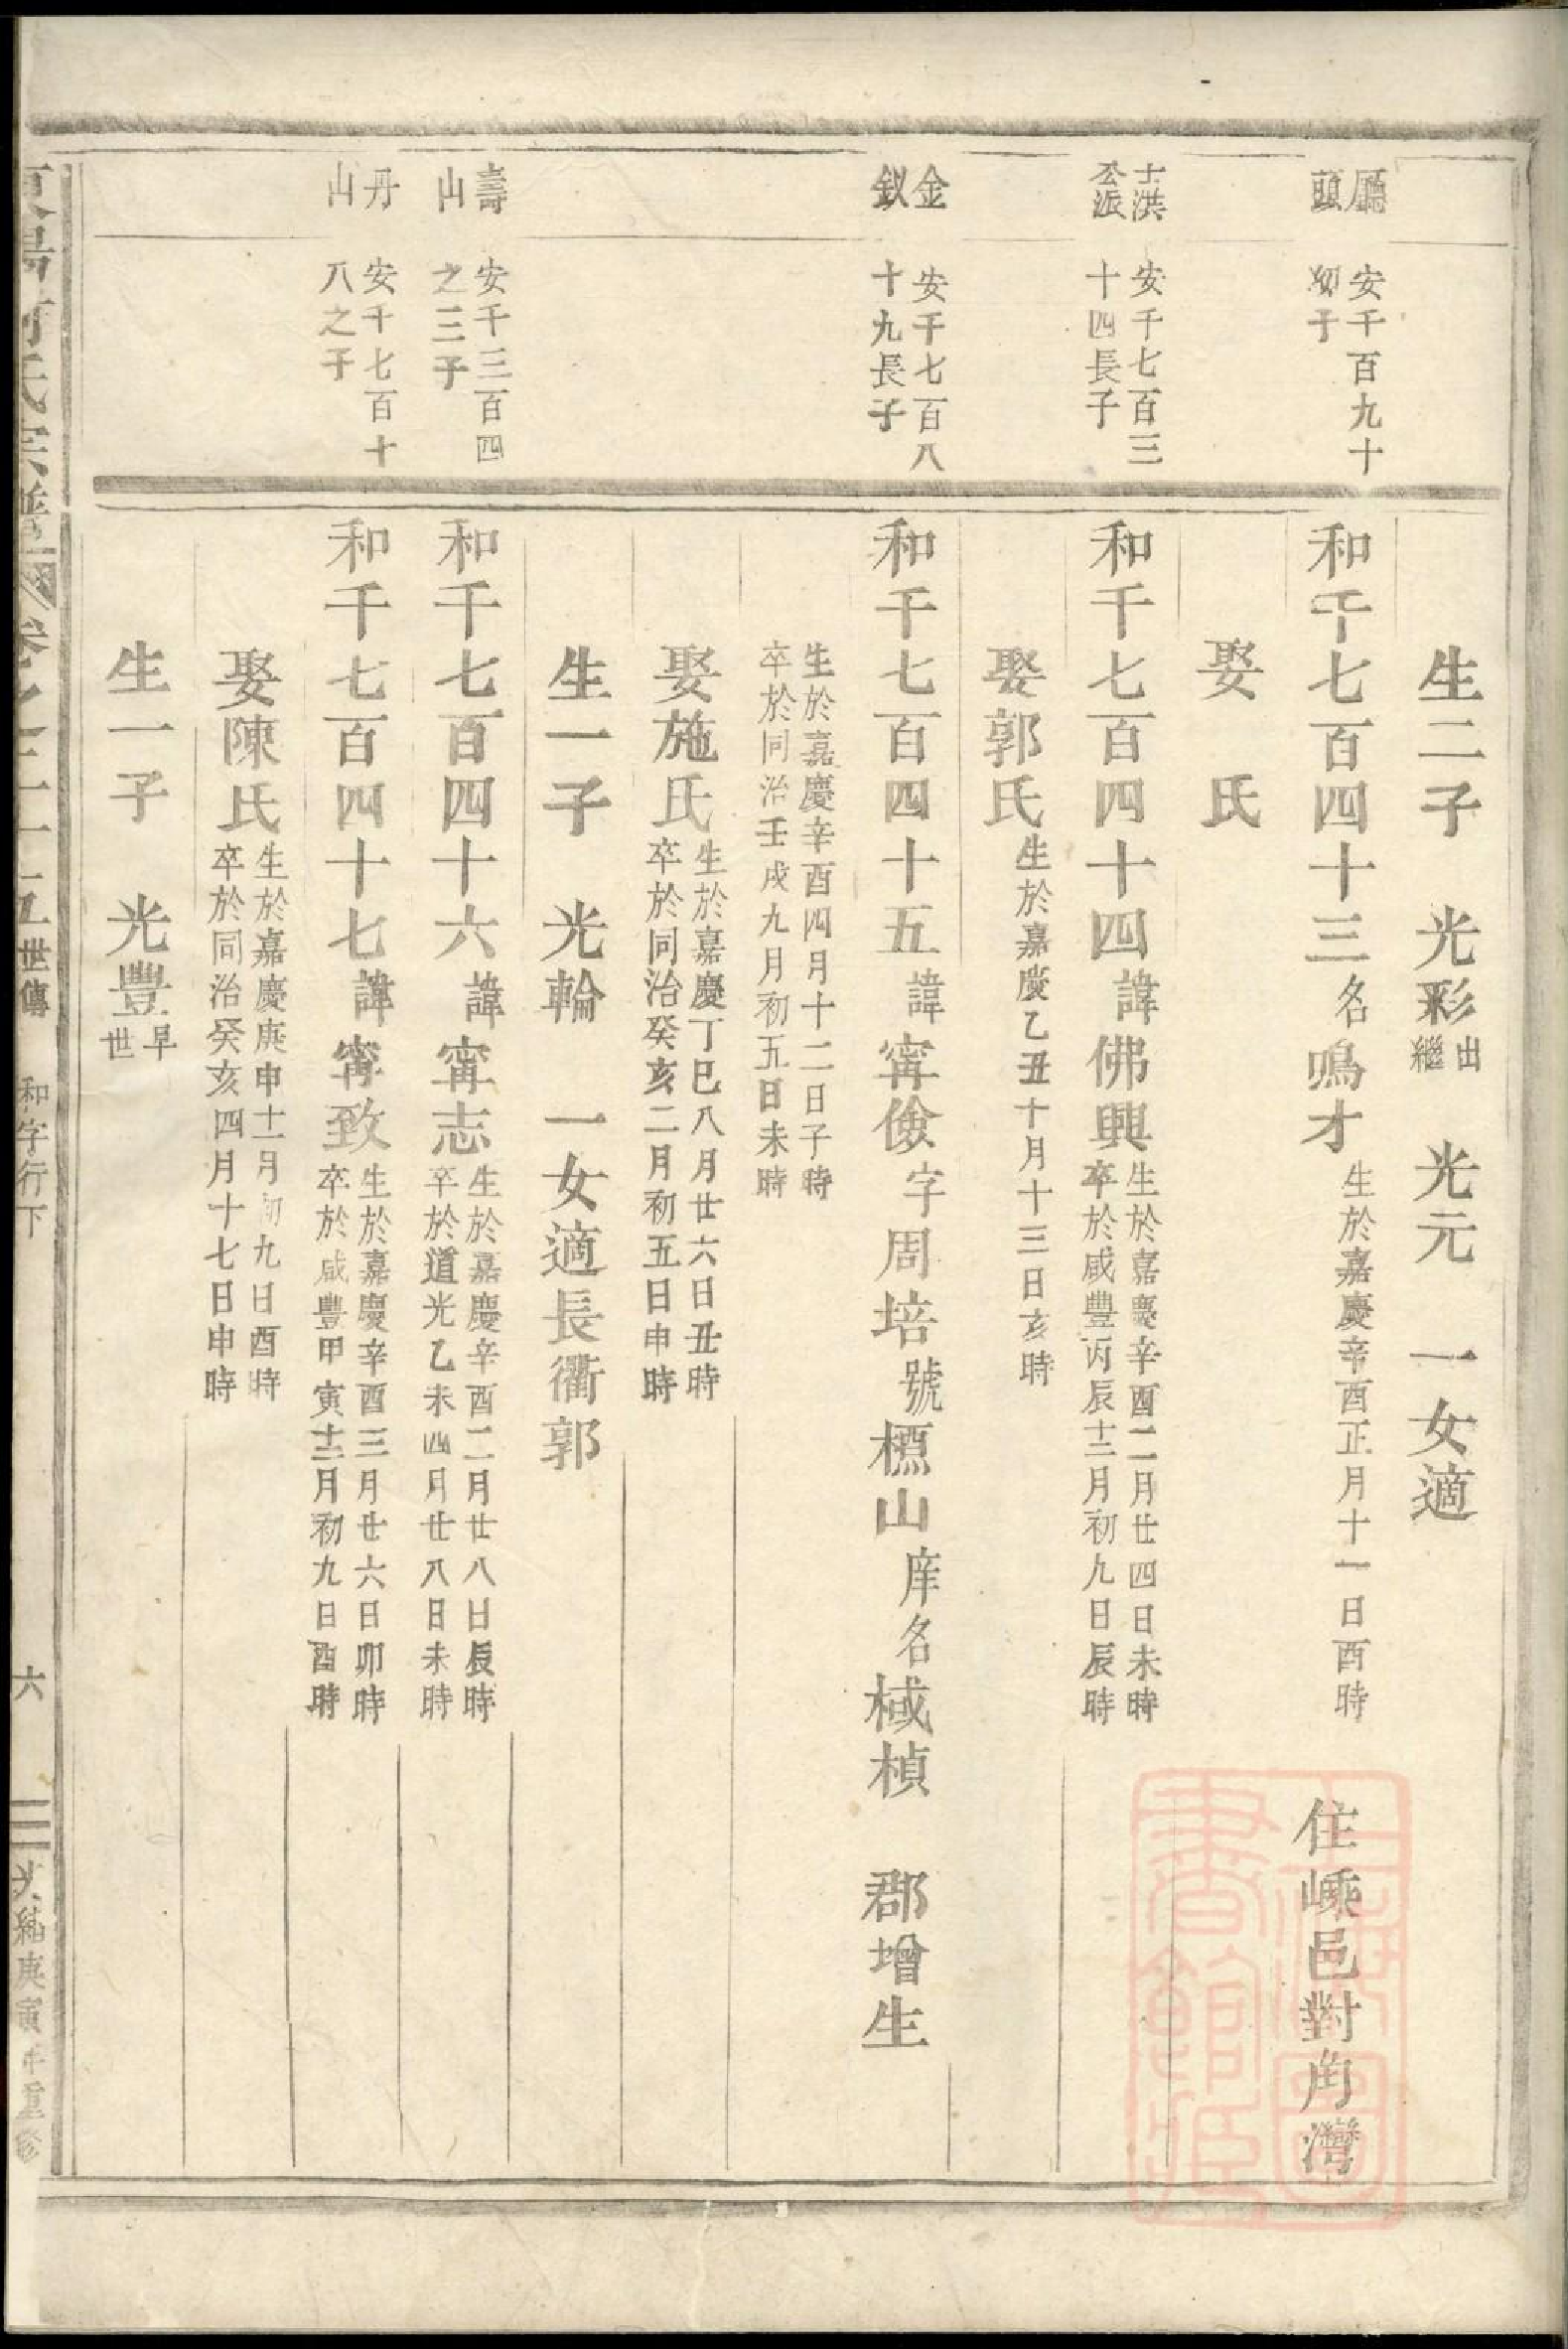 生二子　光彩出繼　光元　一女適
廳頭
安千百九十
幼子
和千七百四十三名鳴才生於嘉慶辛酉正月十一日酉時　住嵊邑對角灣
娶　氏
士洪公派
安千七百三
十四長子
和千七百四十四諱佛興生於嘉慶辛酉二月廿四日未時
卒於咸豐丙辰十二月初九日辰時
娶郭氏生於嘉慶乙丑十月十三日亥時
金釵
安千七百八
十九長子
和千七百四十五諱甯儉字周培號櫄山庠名棫楨　郡增生
生於嘉慶辛酉四月十二日子時
卒於同治壬戌九月初五日未時
娶施氏生於嘉慶丁巳八月廿六日丑時
卒於同治癸亥二月初五日申時
生一子　光輪　一女適長衢郭
壽山
安千三百四
之三子
和千七百四十六諱甯志生於嘉慶辛酉二月廿八日辰時
卒於道光乙未四月廿八日未時
丹山
安千七百十
八之子
和千七百四十七諱甯致生於嘉慶辛酉三月廿六日卯時
卒於咸豐甲寅十二月初九日酉時
娶陳氏生於嘉慶庚申十一月初九日酉時
卒於同治癸亥四月十七日申時
生一子　光豐早世
氏宗譜
世傳　和字行下　六　庚寅年重修